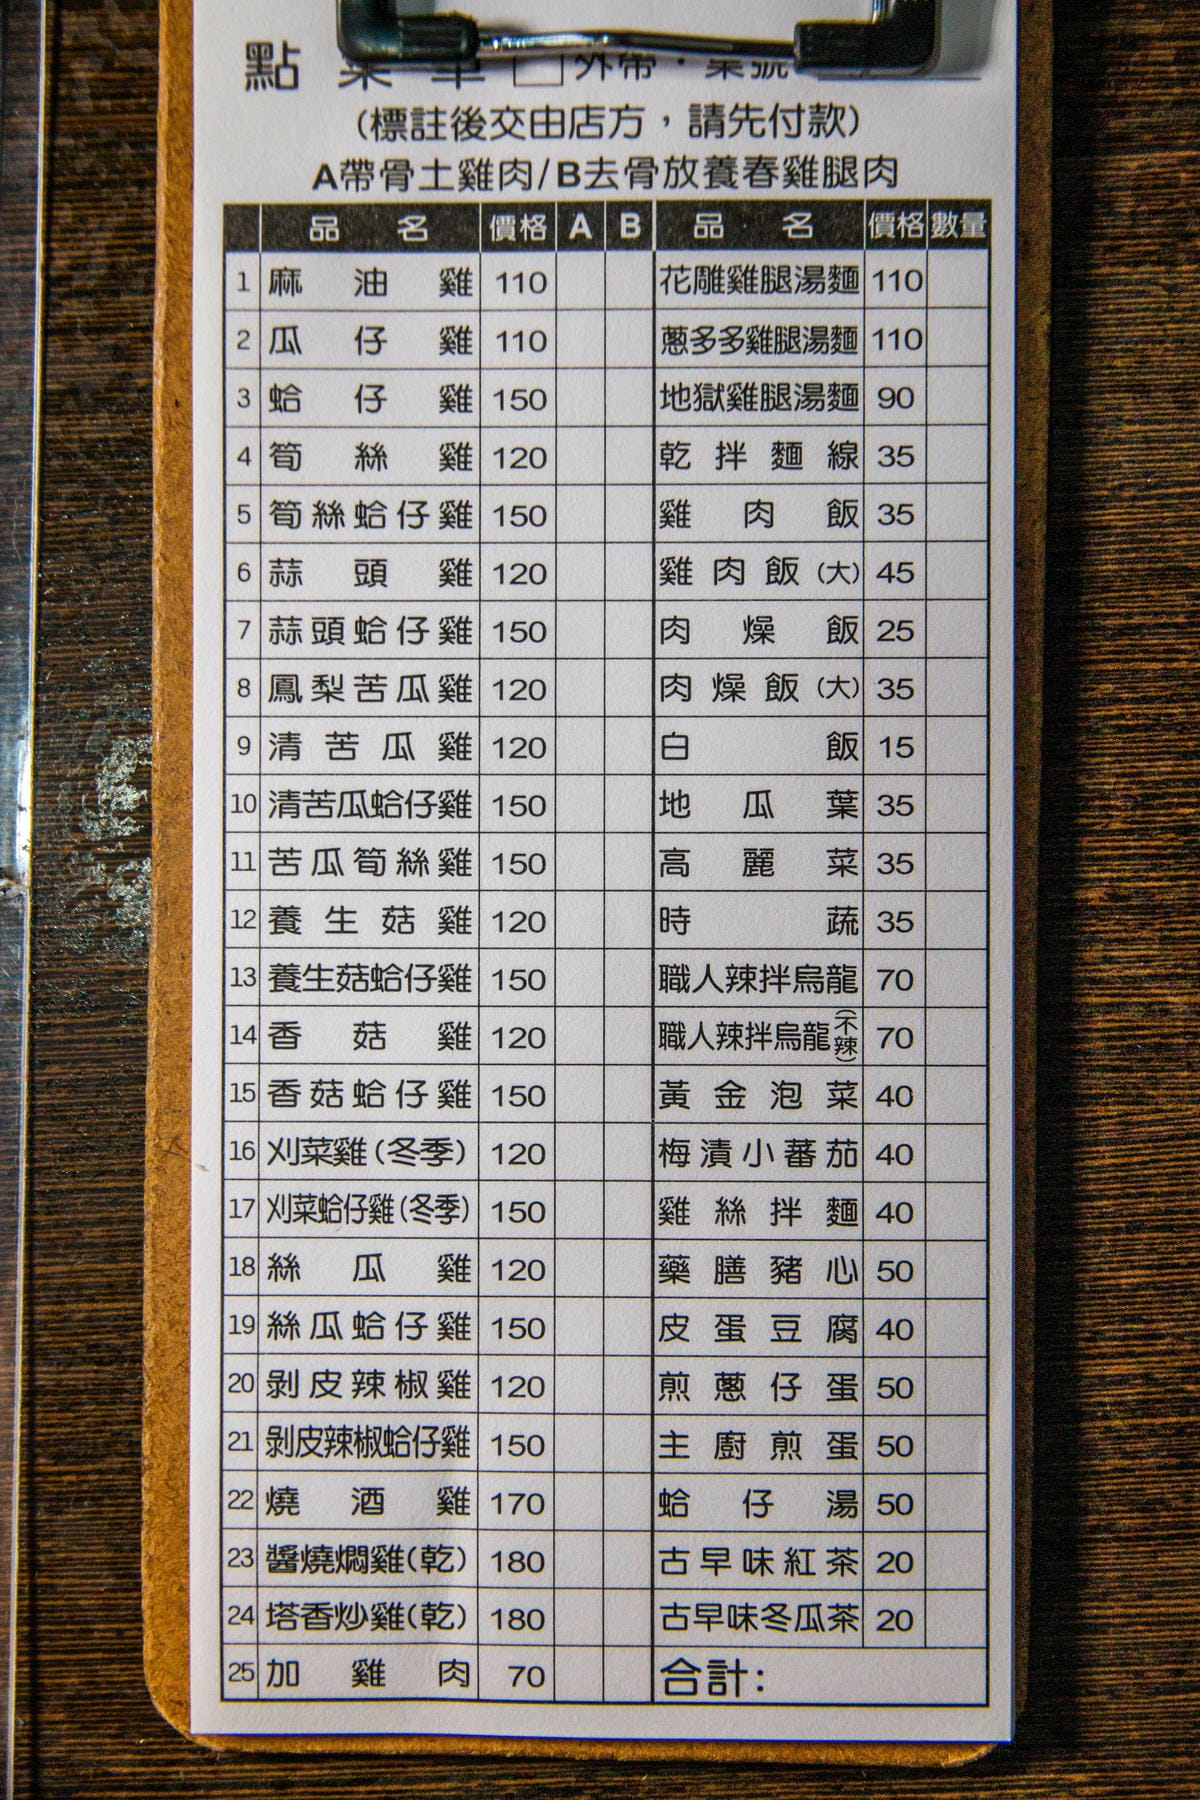 點菜單 □外帶·桌號
(標註後交由店方，請先付款)
A帶骨土雞肉/B去骨放養春雞腿肉
品名 價格 A B 品名 價格 數量
1 麻油雞 110 花雕雞腿湯麵 110
2 瓜仔雞 110 蔥多多雞腿湯麵 110
3 蛤仔雞 150 地獄雞腿湯麵 90
4 筍絲雞 120 乾拌麵線 35
5 筍絲蛤仔雞 150 雞肉飯 35
6 蒜頭雞 120 雞肉飯(大) 45
7 蒜頭蛤仔雞 150 肉燥飯 25
8 鳳梨苦瓜雞 120 肉燥飯(大) 35
9 清苦瓜雞 120 白飯 15
10 清苦瓜蛤仔雞 150 地瓜葉 35
11 苦瓜筍絲雞 150 高麗菜 35
12 養生菇雞 120 時蔬 35
13 養生菇蛤仔雞 150 職人辣拌烏龍 70
14 香菇雞 120 職人辣拌烏龍(不辣) 70
15 香菇蛤仔雞 150 黃金泡菜 40
16 刈菜雞(冬季) 120 梅漬小蕃茄 40
17 刈菜蛤仔雞(冬季) 150 雞絲拌麵 40
18 絲瓜雞 120 藥膳豬心 50
19 絲瓜蛤仔雞 150 皮蛋豆腐 40
20 剝皮辣椒雞 120 煎蔥仔蛋 50
21 剝皮辣椒蛤仔雞 150 主廚煎蛋 50
22 燒酒雞 170 蛤仔湯 50
23 醬燒燜雞(乾) 180 古早味紅茶 20
24 塔香炒雞(乾) 180 古早味冬瓜茶 20
25 加雞肉 70 合計: